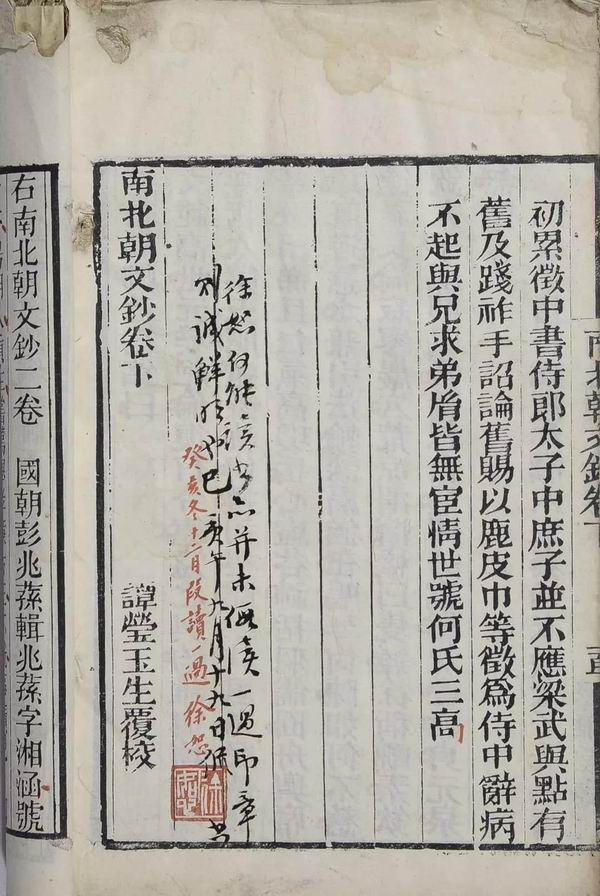 初累徵中書侍郎太子中庶子並不應梁武與點有
舊及踐祚手詔論舊賜以鹿皮巾等徵為侍中辭病
不起與兄求弟𦙍皆無宦情世號何氏三高
徐恕何能讀書亦并未假讀一過印章
則誠鮮明也已 庚午九月十九日
癸亥冬十二月段讀一過徐恕
南北朝文鈔卷下
譚瑩玉生覆校
右南北朝文鈔二卷 國朝彭兆蓀輯兆蓀字湘涵號
南北朝文鈔卷下